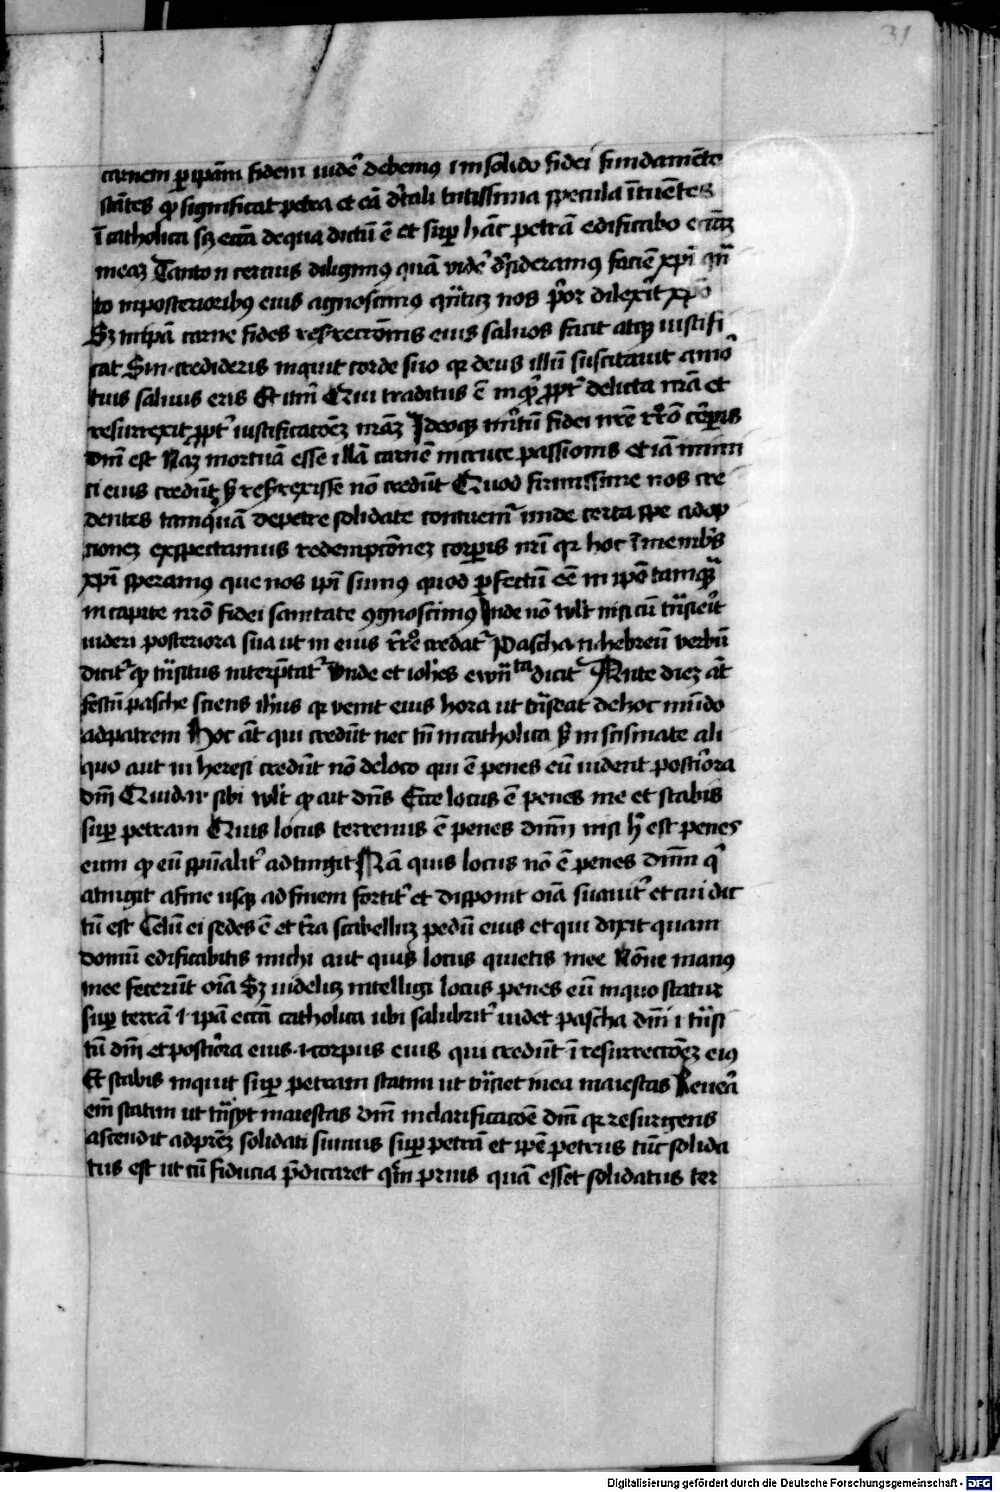 31
carnem p ipām fidem uidē debemus i in solido fidei fundamēto
stātes qp significat petra et eā de tali tutissima specula ītuētes
ī catholica scz eccā de qua dictū ē et sup hāc petrā edificabo eccāz
meaz Tanto n cercius diligimus quā vidē desideramus faciē xpi qn
to in posterioribus eius agnoscimus quātuz nos por dilexit xpō
Sz in ipā carne fides resurrectōnis eius saluos facit atqz iustifi
cat Si n credideris inquit corde tuo qr deus illū suscitauit a mor
tuis saluus eris Et itm Qui traditus ē inquit ppt delicta nrā et
resurrexit ppt iustificatōez nrāz Ideoqz meritū fidei nre rro corporis
dni est Naz mortuā esse illā carnē in cruce passionis et iā inimi
ci eius credūt sz resurrexisse nō credūt Quod firmissime nos cre
dentes tamquā de petre solidate contuemur unde certa spe adop
tionez exspectamus redemptōnez corporis nri qr hoc ī membris
xpi speramus que nos ipi sumus quod pfectū eē in ipō tamquā
in capite nro fidei sanitate cognoscimus Inde nō vult nisi cū trāsierit
uideri posteriora sua ut in eius rrō credat Pascha n hebreū verbū
dicit qp trāsitus interptat Unde et iohes ewāgta dicit Ante diez at
festū pasche sciens ihus qr venit eius hora ut trāseat de hoc mūdo
ad patrem Hoc at qui credūt nec tn in catholica sz in scismate ali
quo aut in heresi credūt nō de loco qui ē penes eū uident posteriora
dni Quid n sibi vult qp ait dns Ecce locus ē penes me et stabis
sup petram Quis locus terrenus ē penes dnm nisi h est penes
eum qp eū spualit adtingit Nā quis locus nō ē penes dnm q
atingit a fine usqz ad finem fortit et disponit oia suauit et cui dic
tū est Celū ei sedes ē et tra scabellūz pedū eius et qui dixit quam
domū edificabitis michi aut quis locus quietis mee Nōne manus
mee fecerūt oia Sz uidelicz intelligi locus penes eū in quo statur
sup terrā i ipā eccā catholica ubi salubrit uidet pascha dni i trāsi
tū dni et posteriora eius i corpus eius qui credūt ī resurrectōez eius
Et stabis inquit sup petram statim ut trāsiet mea maiestas Reuera
em statim ut trāsyt maiestas dni in clarificatōe dni qr resurgens
ascendit ad prez solidati sumus sup petrā et ipe petrus tūc solida
tus est ut cū fiducia pdicaret quem prius quā esset solidatus ter
Digitalisierung gefördert durch die Deutsche Forschungsgemeinschaft - DFG